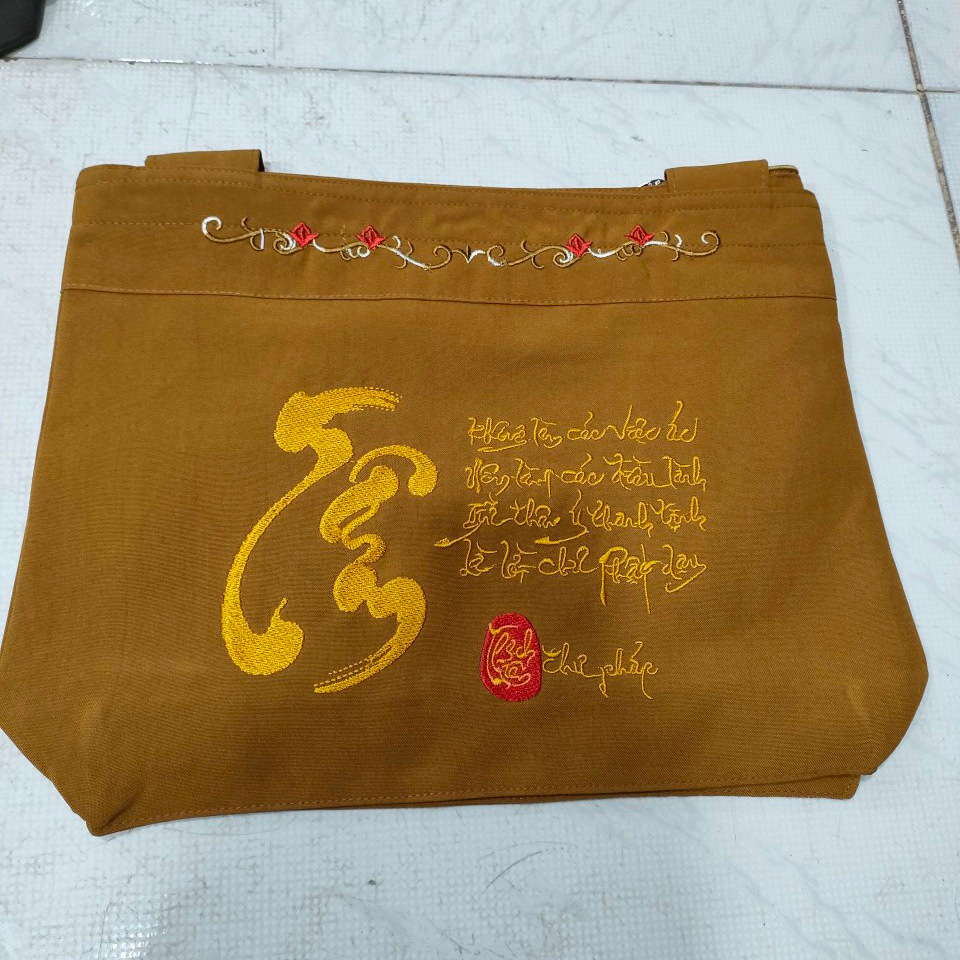 Tâm
Không làm các việc ác
Nên làm các điều lành
Giữ thân ý thanh tịnh
Là lời chư Phật dạy
thư pháp